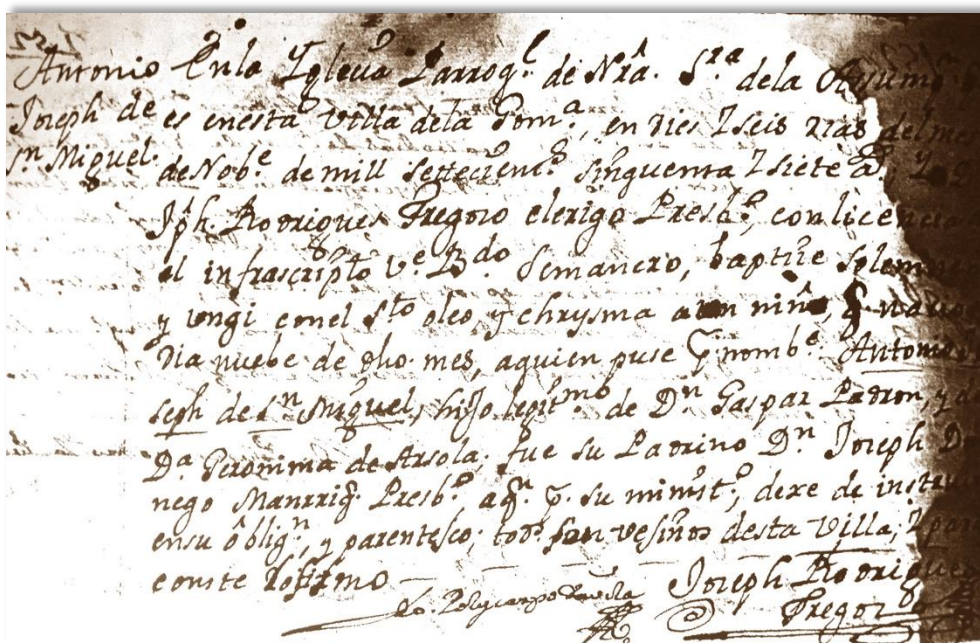 Antonio En la Yglecia Parroql. de Nra. Sra. de la Asump
Joseph de es en esta Villa de la Goma, en dies y seis dias del me
Sn. Miguel. de Nobe. de mill settecients. sinquenta y siete as. Yo
Jph. Rodrigues Fregozo clerigo Presbo. con licencia
el infrascripto Ve. Bdo. semanero, baptize solemne
y ungi con el Sto. oleo, y chrysma a un niño, q. nacio
dia nuebe de dho. mes, a quien puse p. nombe. Antonio
seph de Sn. Miguel, hijo legitmo. de Dn. Gaspar Padron, y
Da. Geronima de Arsola; fue su Padrino Dn. Joseph D
nego Manrriq. Presbo. a qn. p. su ministo., dexe de instru
en su obligon., y parentesco; tods. son vesinos desta Villa, y par
conste lo firmo —
Joseph Rodrigue
Fregoz